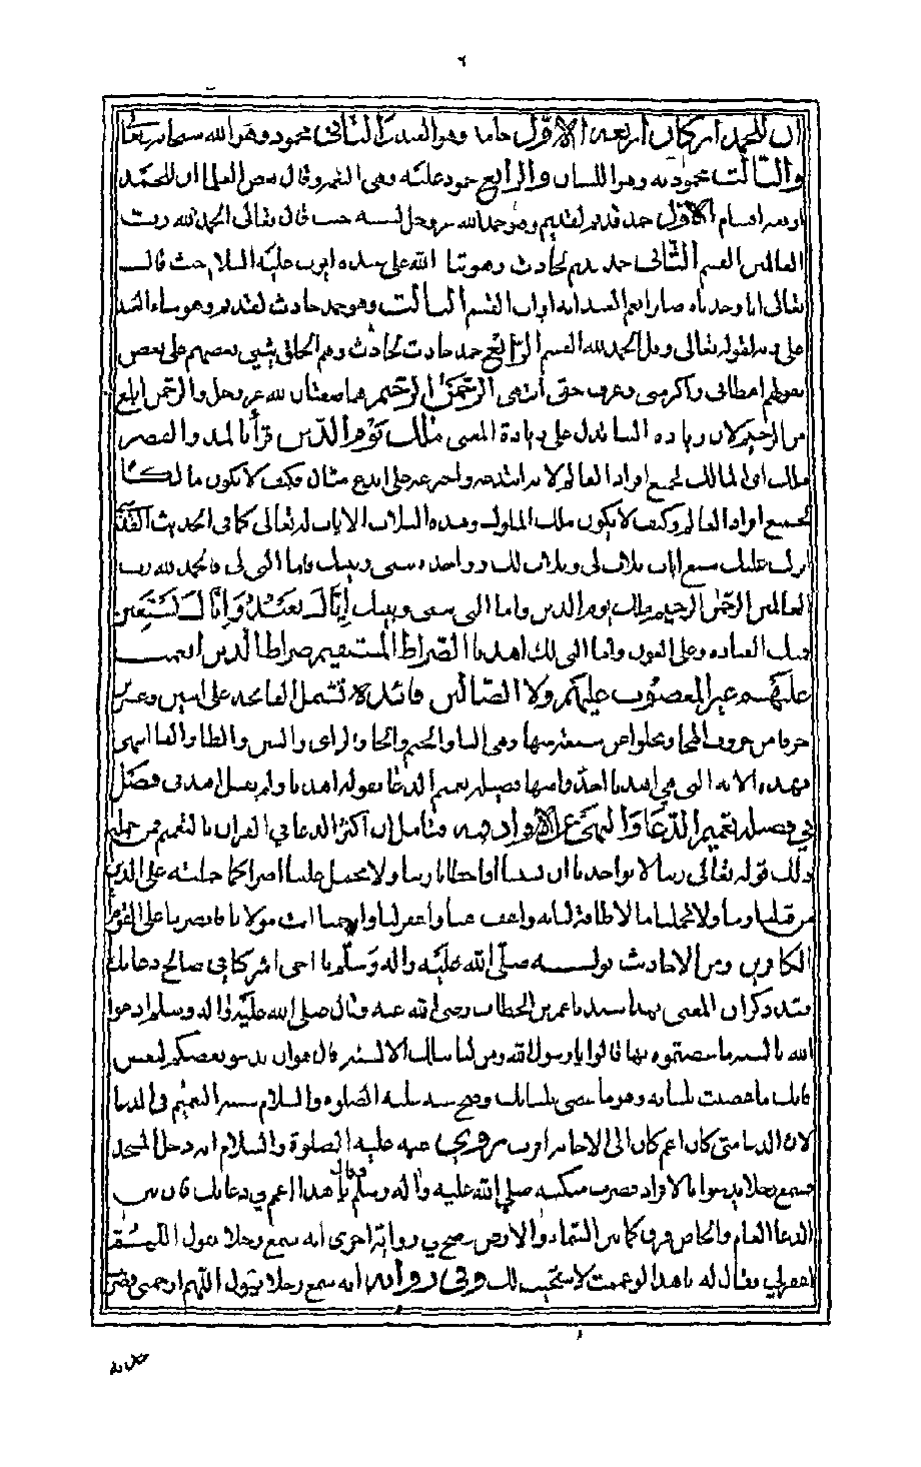 ٦
ان للحمد اركان اربعة الاول حامد وهو العبد الثاني محمود وهو الله سبحانه وتعالى
والثالث محمود به وهو اللسان والرابع محمود عليه وهي النعم وقال بعض العلماء ان للحمد
اربعة اقسام الاول حمد قديم لقديم وهو حمد الله عز وجل لنفسه حيث قال تعالى الحمد لله رب
العالمين القسم الثاني حمد قديم لحادث وهو ثناء الله على عبده ايوب عليه السلام حيث قال
تعالى انا وجدناه صابرا نعم العبد انه اواب القسم الثالث وهو حمد حادث لقديم وهو ثناء العبد
على ربه لقوله تعالى وقل الحمد لله القسم الرابع حمد حادث لحادث وهم الخلق يثني بعضهم على بعض
بقولهم اعطاني واكرمني ونحوه حتى انتهى الرحمن الرحيم هما صفتان لله عز وجل والرحمن ابلغ
من الرحيم لان زيادة البناء تدل على زيادة المعنى ملك يوم الدين قرأ بالمد والقصر
ملك اي المالك لجميع افراد العالم لانه ابتدعه واخترعه على ابدع مثال فكيف لا يكون مالكا
لجميع افراد العالم وكيف لا يكون ملك الملوك وهذه الثلاث الايات له تعالى كما في الحديث
انزلت عليك سبع ايات ثلاث لي وثلاث لك وواحدة بيني وبينك فاما التي لي فالحمد لله رب
العالمين الرحمن الرحيم ملك يوم الدين واما التي بيني وبينك اياك نعبد واياك نستعين
منك العبادة وعلي العون واما التي لك اهدنا الصراط المستقيم صراط الذين انعمت
عليهم غير المغضوب عليهم ولا الضالين فائدة تشتمل الفاتحة على اثنين وعشرين
حرفا من حروف الهجا وتخلوا عن سبعة منها وهي الثا والجيم والخا والزاي والشين والظا والفا انتهى
وهذه الاية التي هي اهدنا الخ وما فيها فضيلة تعميم الدعا بقوله اهدنا ولم يقل اهدني فصل
في فضيلة تعميم الدعا والنهي عن الافراد فيه وتأمل ان اكثر الدعا في القران بالتعميم فمن جملة
ذلك قوله تعالى ربنا لا تواخذنا ان نسينا او اخطانا ربنا ولا تحمل علينا اصرا كما حملته على الذين
من قبلنا ربنا ولا تحملنا ما لا طاقة لنا به واعف عنا واغفر لنا وارحمنا انت مولانا فانصرنا على القوم
الكافرين ومن الاحاديث قوله صلى الله عليه واله وسلم يا اخي اشركنا في صالح دعائك
عمر بن الخطاب رضي الله عنه وقال صلى الله عليه واله وسلم ادعوا
الله بالسنة ما عصيتموه بها قالوا يا رسول الله ومن لنا بتلك الالسنة قال هو ان يدعو بعضكم لبعض
فانك ما عصيت بلسانه وهو ما عصى بلسانك وصح عنه عليه الصلوة والسلام التعميم في الدعا
لان الدعا متى كان اعم كان الى الاجابة اقرب مروي عنه عليه الصلوة والسلام انه دخل المسجد
فسمع رجلا يدعوا بالافراد فضرب منكبه صلى الله عليه واله وسلم وقال يا هذا اعمم في دعائك فان بين
الدعا العام والخاص فرق كما بين السماء والارض صح في رواية اخرى انه سمع رجلا يقول اللهم
اغفر لي فقال له يا هذا لو عممت لاستجيب لك وفي رواية انه سمع رجلا يقول اللهم ارحمني